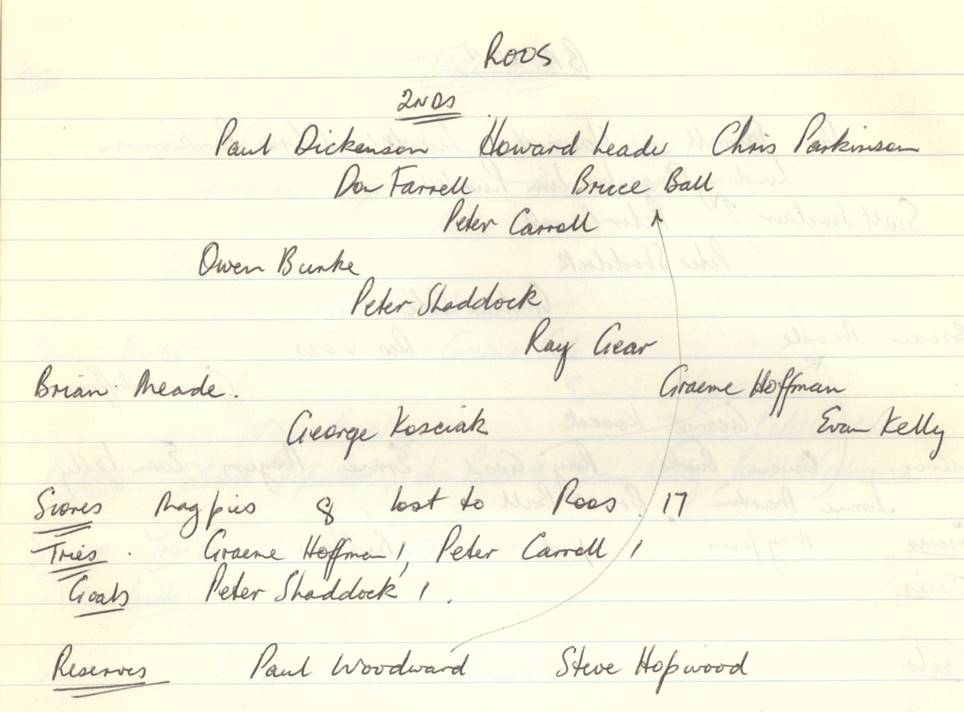 ROOS
2NDS
Paul Dickenson Howard Leade Chris Parkinson
Don Farrell Bruce Ball
Peter Carroll
Owen Burke
Peter Shaddock
Ray Gear
Brian Meade. Graeme Hoffman
George Kosciak Evan Kelly
Scores Magpies 8 lost to Roos 17
Tries. Graeme Hoffman 1, Peter Carroll 1
Goals Peter Shaddock 1.
Reserves Paul Woodward Steve Hopwood